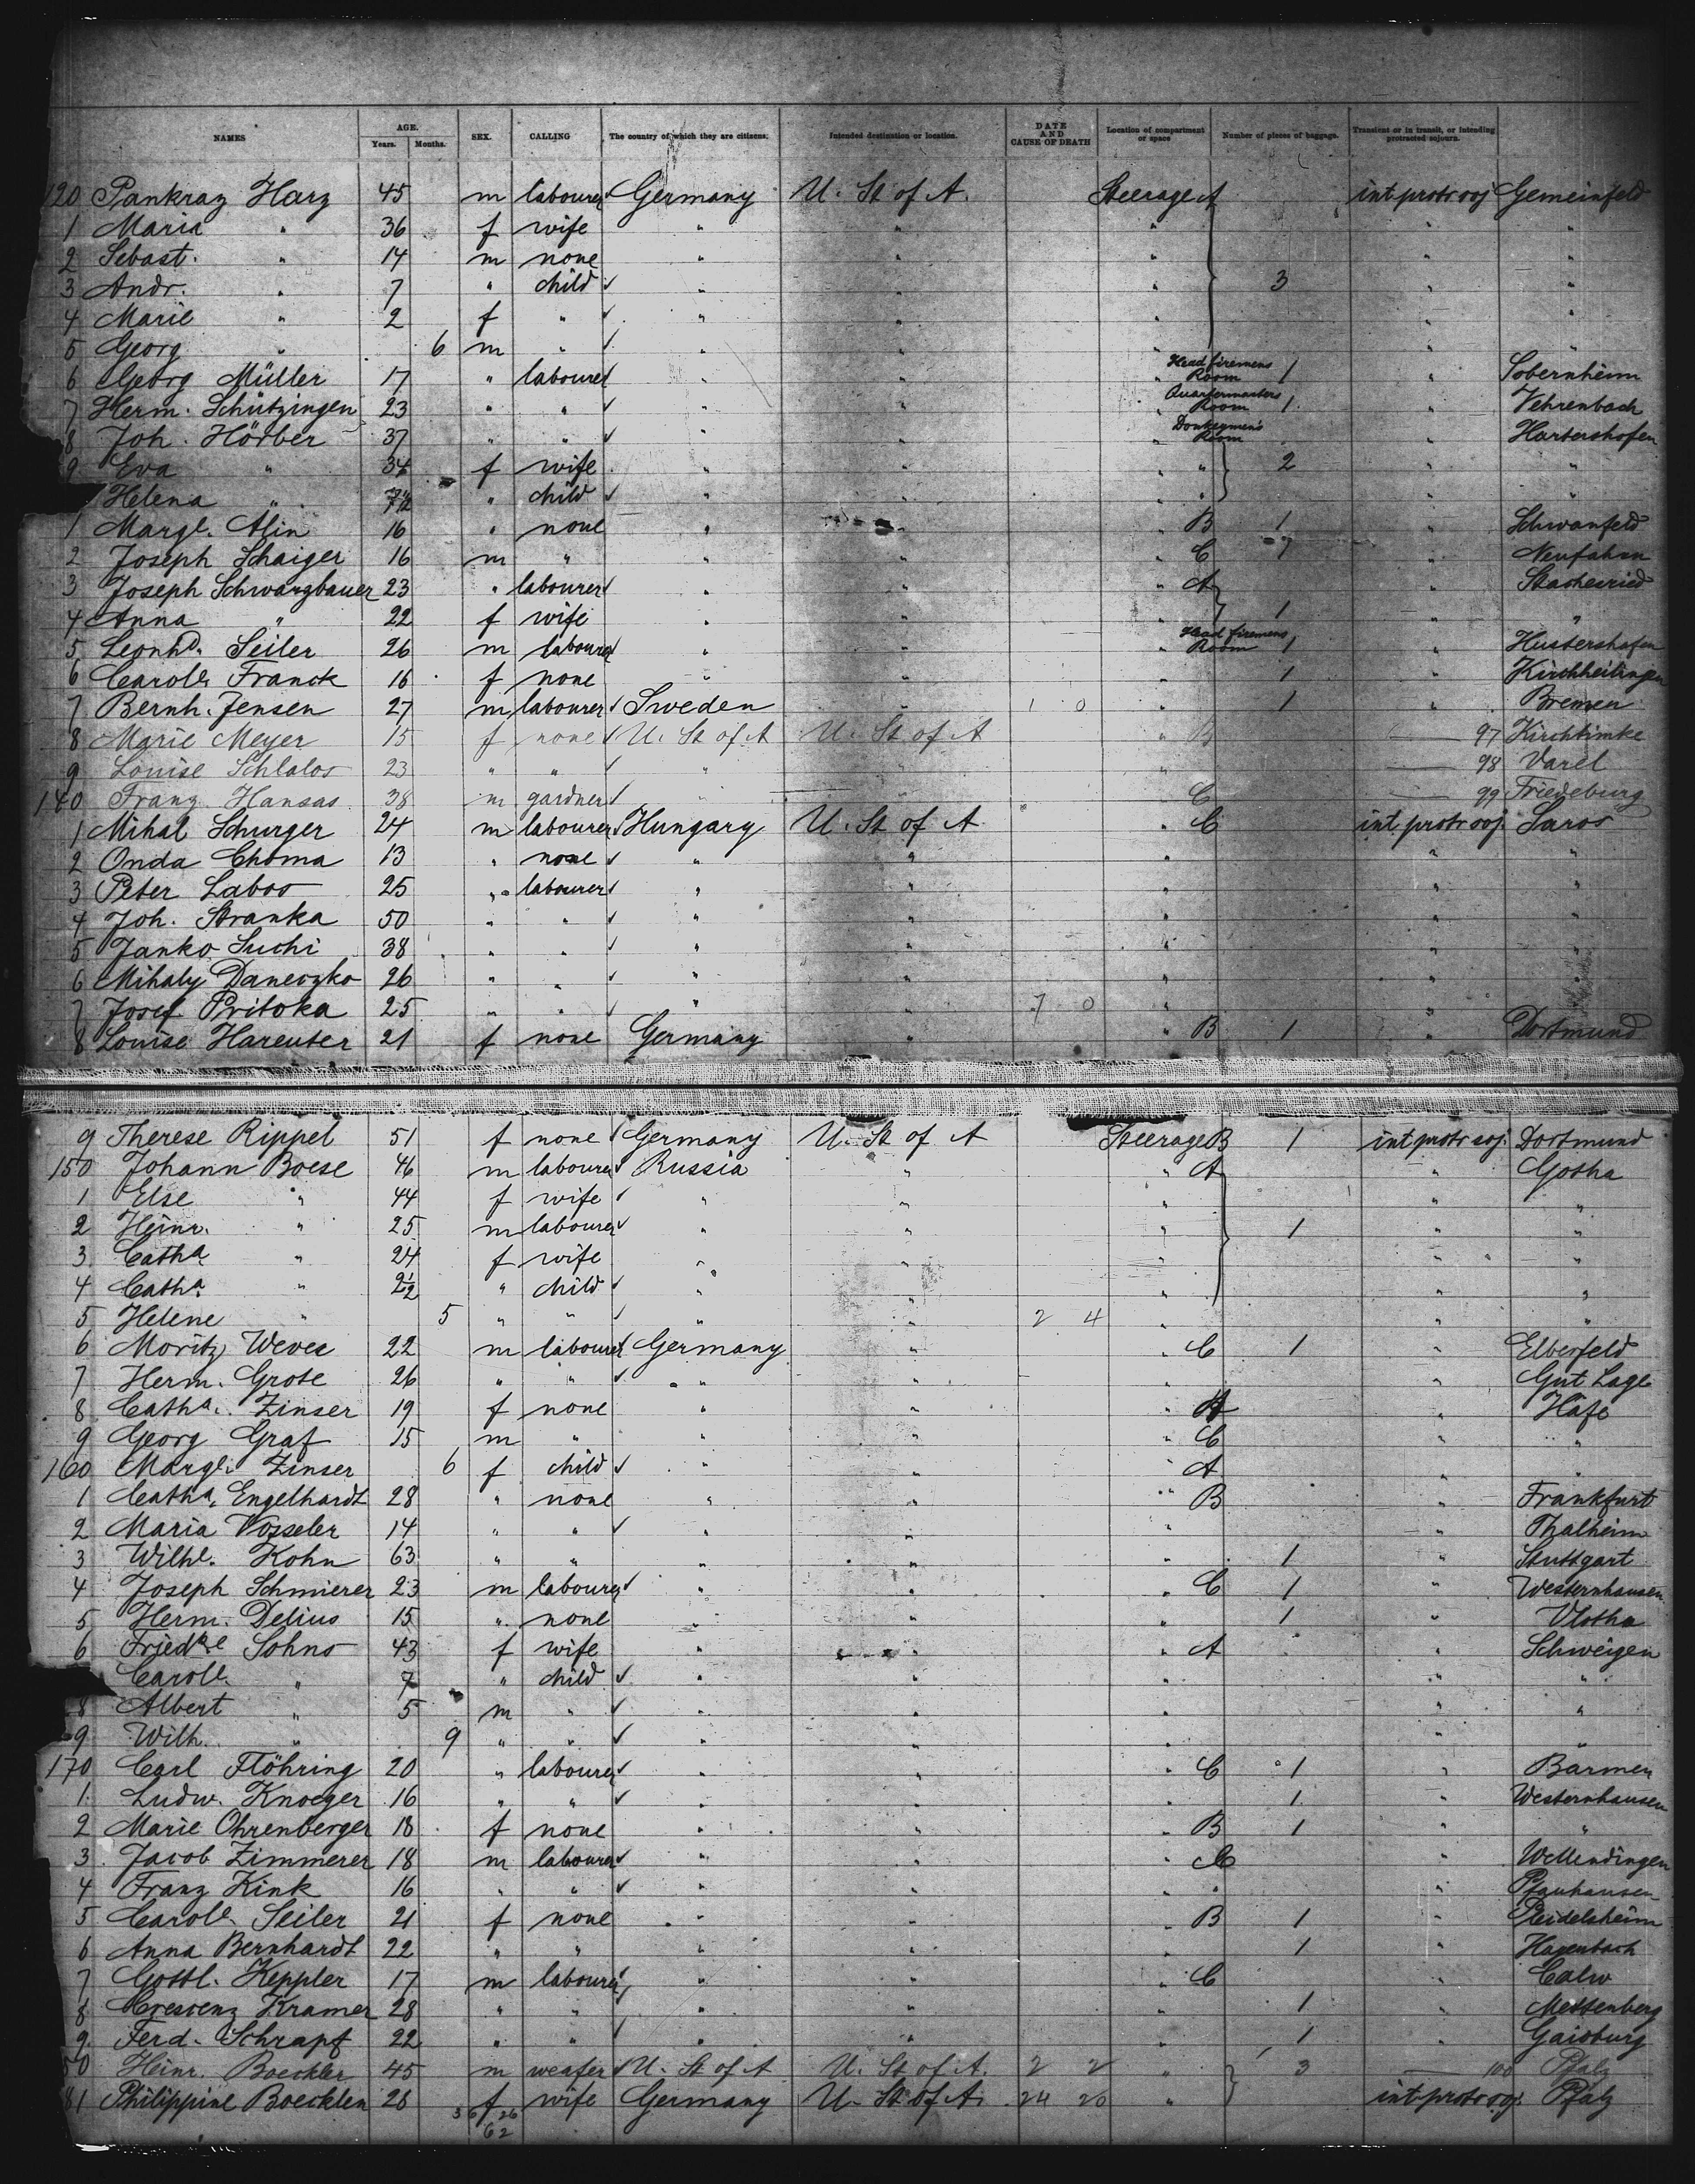 NAMES AGE. Years. Months. SEX. CALLING The country of which they are citizens. Intended destination or location. DATE AND CAUSE OF DEATH Location of compartment or space Number of pieces of baggage. Transient or in transit, or intending protracted sojourn.
120 Pankraz Harz 45 m labourer Germany U. St of A. Steerage A int protr soj Gemeinfeld
1 Maria " 36 f wife " " " " "
2 Sebast. " 14 m none " " " " "
3 Andr. " 7 " child " " " 3 " "
4 Marie " 2 f " " " " " "
5 Georg " 6 m " " " " " "
6 Georg Müller 17 " labourer " " " Head firemens Room 1 " Sobernheim
7 Herm. Schützingen 23 " " " " " Quartermasters Room 1 " Vehrenbach
8 Joh. Hörber 37 " " " " " Donkeymens Room " Hartershofen
9 Eva " 34 f wife " " " " 2 " "
Helena " " child " " " " " "
1 Margt. Alin 16 " none " " " B 1 " Schwanfeld
2 Joseph Schaiger 16 m " " " " C 1 " Neufahrn
3 Joseph Schwarzbauer 23 " labourer " " " A "
4 Anna " 22 f wife " " " 1 " "
5 Leonhd. Seiler 26 m labourer " " " Head firemens Room 1 " Hustershofen
6 Carole Franck 16 f none " " " 1 " Kirchheilingen
7 Bernh. Jensen 27 m labourer Sweden " 1 0 " 1 " Bremen
8 Marie Meyer 15 f none U. St of A U. St of A " B 97 Kirchtimke
9 Louise Schlalos 23 " " " " " 98 Varel
140 Franz Hansas 38 m gardner " " " C 99 Friedeburg
1 Mihal Schurger 24 m labourer Hungary U. St of A " C int protr soj. Saros
2 Onda Choma 13 " none " " " " "
3 Peter Labos 25 " labourer " " " " "
4 Joh. Stranka 50 " " " " " " "
5 Janko Suchi 38 " " " " " " "
6 Mihaly Daneczko 26 " " " " " " "
7 Josef Pritoka 25 " " " " 7 0 " " "
8 Louise Hareuter 21 f none Germany " " B 1 " Dortmund
9 Therese Rippel 51 f none Germany U. St of A Steerage B 1 int protr soj. Dortmund
150 Johann Boese 46 m labourer Russia " " A " Gotha
1 Else " 44 f wife " " " " "
2 Heinr. " 25 m labourer " " " 1 " "
3 Catha " 24 f wife " " " " "
4 Catha. " 2½ " child " " " " "
5 Helene " 5 " " " " 2 4 " " "
6 Moritz Wever 22 m labourer Germany " " C 1 " Elberfeld
7 Herm. Grote 26 " " " " " " Gut Lage
8 Catha. Zinser 19 f none " " " A " Häfe
9 Georg Graf 15 m " " " " C " "
160 Margt. Zinser 6 f child " " " A " "
1 Catha. Engelhardt 28 " none " " " B " Frankfurt
2 Maria Vosseler 14 " " " " " " Thalheim
3 Wilhe. Kohn 63 " " " " " 1 " Stuttgart
4 Joseph Schmierer 23 m labourer " " " C 1 " Westernhausen
5 Herm. Delius 15 " none " " " 1 " Vlotho
6 Friedke Sohns 43 f wife " " " A " Schweigen
Carole. " 7 " child " " " " "
8 Albert " 5 m " " " " " "
9 Wilh. " 9 " " " " " " "
170 Carl Flöhring 20 " labourer " " " C 1 " Barmen
1 Ludw. Knoeger 16 " " " " " 1 " Westernhausen
2 Marie Ohrenberger 18 f none " " " B 1 " "
3 Jacob Zimmerer 18 m labourer " " " C " Wellendingen
4 Franz Kink 16 " " " " " " Pfauhausen
5 Carole Seiler 21 f none " " " B 1 " Pleidelsheim
6 Anna Bernhardt 22 " " " " " 1 " Hagenbach
7 Gottl. Keppler 17 m labourer " " " C " Calw
8 Crescenz Kramer 28 " " " " " 1 " Mettenberg
9 Ferd. Schrapf 22 " " " " " 1 " Gaisburg
80 Heinr. Boeckler 45 m weafer U. St of A U. St of A. 2 2 " 3 100 Pfalz
81 Philippine Boecklen 28 f wife Germany U. St of A. 24 20 " int protr soj. Pfalz